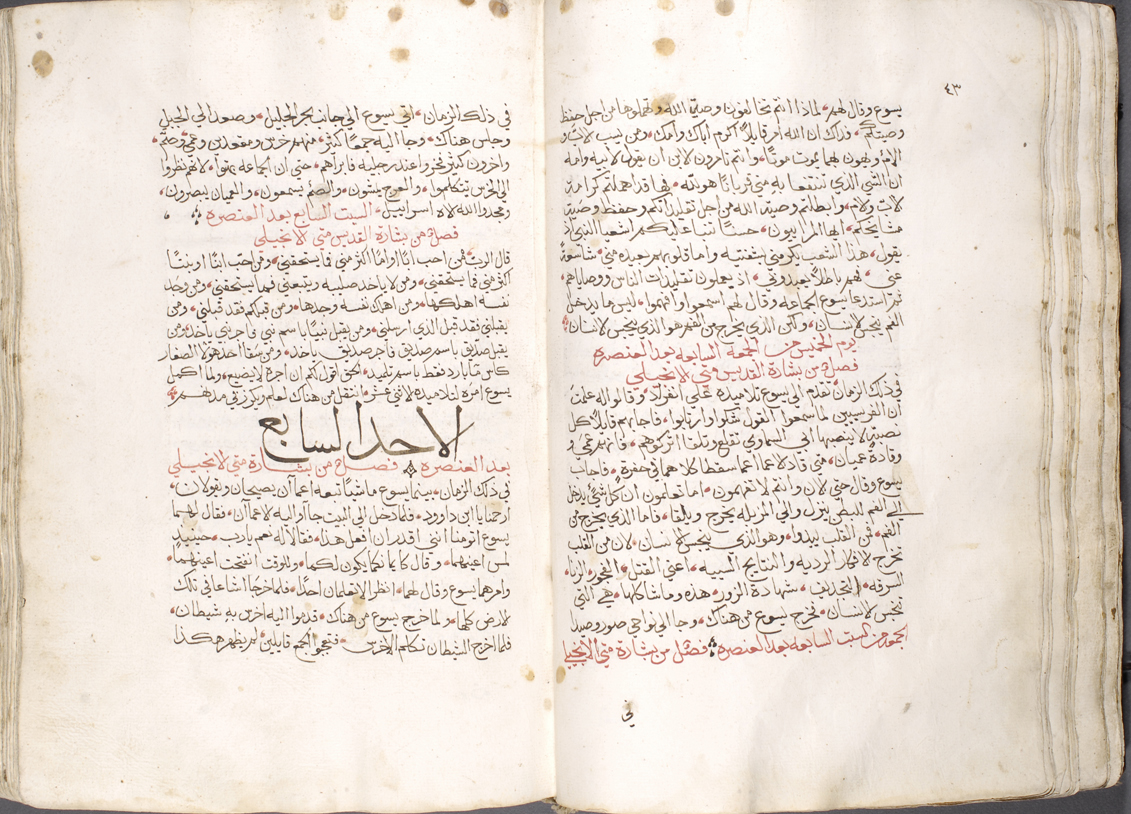 ٤٣
يسوع وقال لهم لماذا انتم تخالفون وصية الله وتهملوها من اجل حفظ
وصيتكم فذلك ان الله امر قايلاً اكرم اباك وامك ومن يسب لاب او
الام ويهون بهما يموت موتًا وانتم تامرون لابن ان يقول لابيه وامه
ان الشي الذي تنتفعا به مني قربانًا هو لله
لاب ولام وابطلتم وصية الله من اجل تقليداتكم وحفظ وصية
مشايخكم ايها المرايون حسنًا تنبا عليكم اشعيا النبي اذ
يقول هذا الشعب يكرمني بشفتيه واما قلوبهم بعيده مني شاسعة
عني فهم باطلاً يعبدوني اذ يعلمون تقليدات الناس ووصاياهم
ثم استدعا يسوع الجماعه وقال لهم اسمعوا وافهموا ليس ما يدخل
الفم ينجس لانسان ولكن الذي يخرج من الفم هو الذي ينجس لانسان
يوم الخميس من الجمعه السابعه بعد العنصره
فصل من بشارة القديس متى لانجيلي
في ذلك الزمان تقدم الى يسوع تلاميذه على انفراد وقالوا له علمت
ان الفريسيين لما سمعوا القول شكوا وارتابوا فاجابهم قايلاً كل
نصبة لا ينصبها ابي السماوي تقلع وتلقا اتركوهم فانهم عمي و
وقادة عميان متى قاد لاعما اعما سقطا كلاهما في حفرة فاجاب
يسوع وقال حتى لان وانتم لا تفهمون اما تعلمون ان كل شي يدخل
الى الفم للبطن ينزل والى المزبله يخرج ويلقا فاما الذي يخرج من
الفم فمن القلب يبدوا وهو الذي ينجس لانسان لان من القلب
تخرج لافكار الرديه والنتايج المسيه اعني القتل الفجور الزنا
السرقه التجديف شهادة الزور هذه وما شاكلها هي التي
تنجس لانسان فخرج يسوع من هناك وجا الى نواحي صور وصيدا
فصل من بشارة متى الانجيلي
في
في ذلك الزمان اتى يسوع الى جانب بحر الجليل وصعد الى الجبل
وجلس هناك وجا اليه جمعًا كثير منهم خرس ومقعدين وعمي وصم
واخرون كثير فخروا عند رجليه فابراهم حتى ان الجماعه بهتوا لانهم نظروا
الى الخرس يتكلموا والعرج يمشون والصم يسمعون والعميان يبصرون
ومجدوا الله لاه اسراييل السبت السابع بعد العنصره
فصل من بشارة القديس متى لانجيلي
قال الرب من احب ابًا او امًا اكثر مني فما يستحقني ومن احب ابنًا او بنتًا
اكثر مني فما يستحقني ومن لا ياخذ صليبه ويتبعني فما يستحقني ومن وجد
نفسه اهلكها ومن اهلك نفسه وجدها ومن قبلكم فقد قبلني ومن
يقبلني فقد قبل الذي ارسلني ومن يقبل نبيًا باسم نبي فاجر نبي ياخذ ومن
يقبل صديق باسم صديق فاجر صديق ياخذ ومن سقا احد هولا الصغار
كاس ما بارد فقط باسم تلميذ الحق اقول لكم ان اجره لا يضيع ولما اكمل
يسوع امره لتلاميذه لاثني عشر انتقل من هناك ليعلم ويكرز في مدنهم
الاحد السابع
بعد العنصره فصل من بشارة متى لانجيلي
في ذلك الزمان بينما يسوع ماشيًا تبعه اعمآن يصيحان ويقولان
ارحمنا يا ابن داوود فلما دخل الى البيت جآا اليه لاعمآن فقال لهما
يسوع اتومنا انني اقدر ان افعل هذا فقالا له نعم يارب حينيذ
لمس اعينهما وقال كايمانكما يكون لكما وللوقت انفتحت اعينهما
وامرهما يسوع وقال لهما انظرا لا تعلمان احدًا فلما خرجا اشاعا في تلك
لارض كلها ولما خرج يسوع من هناك قدموا اليه اخرس به شيطان
فلما اخرج الشيطان تكلم الاخرس فتعجبوا الجمع قايلين لم يظهر هكذا